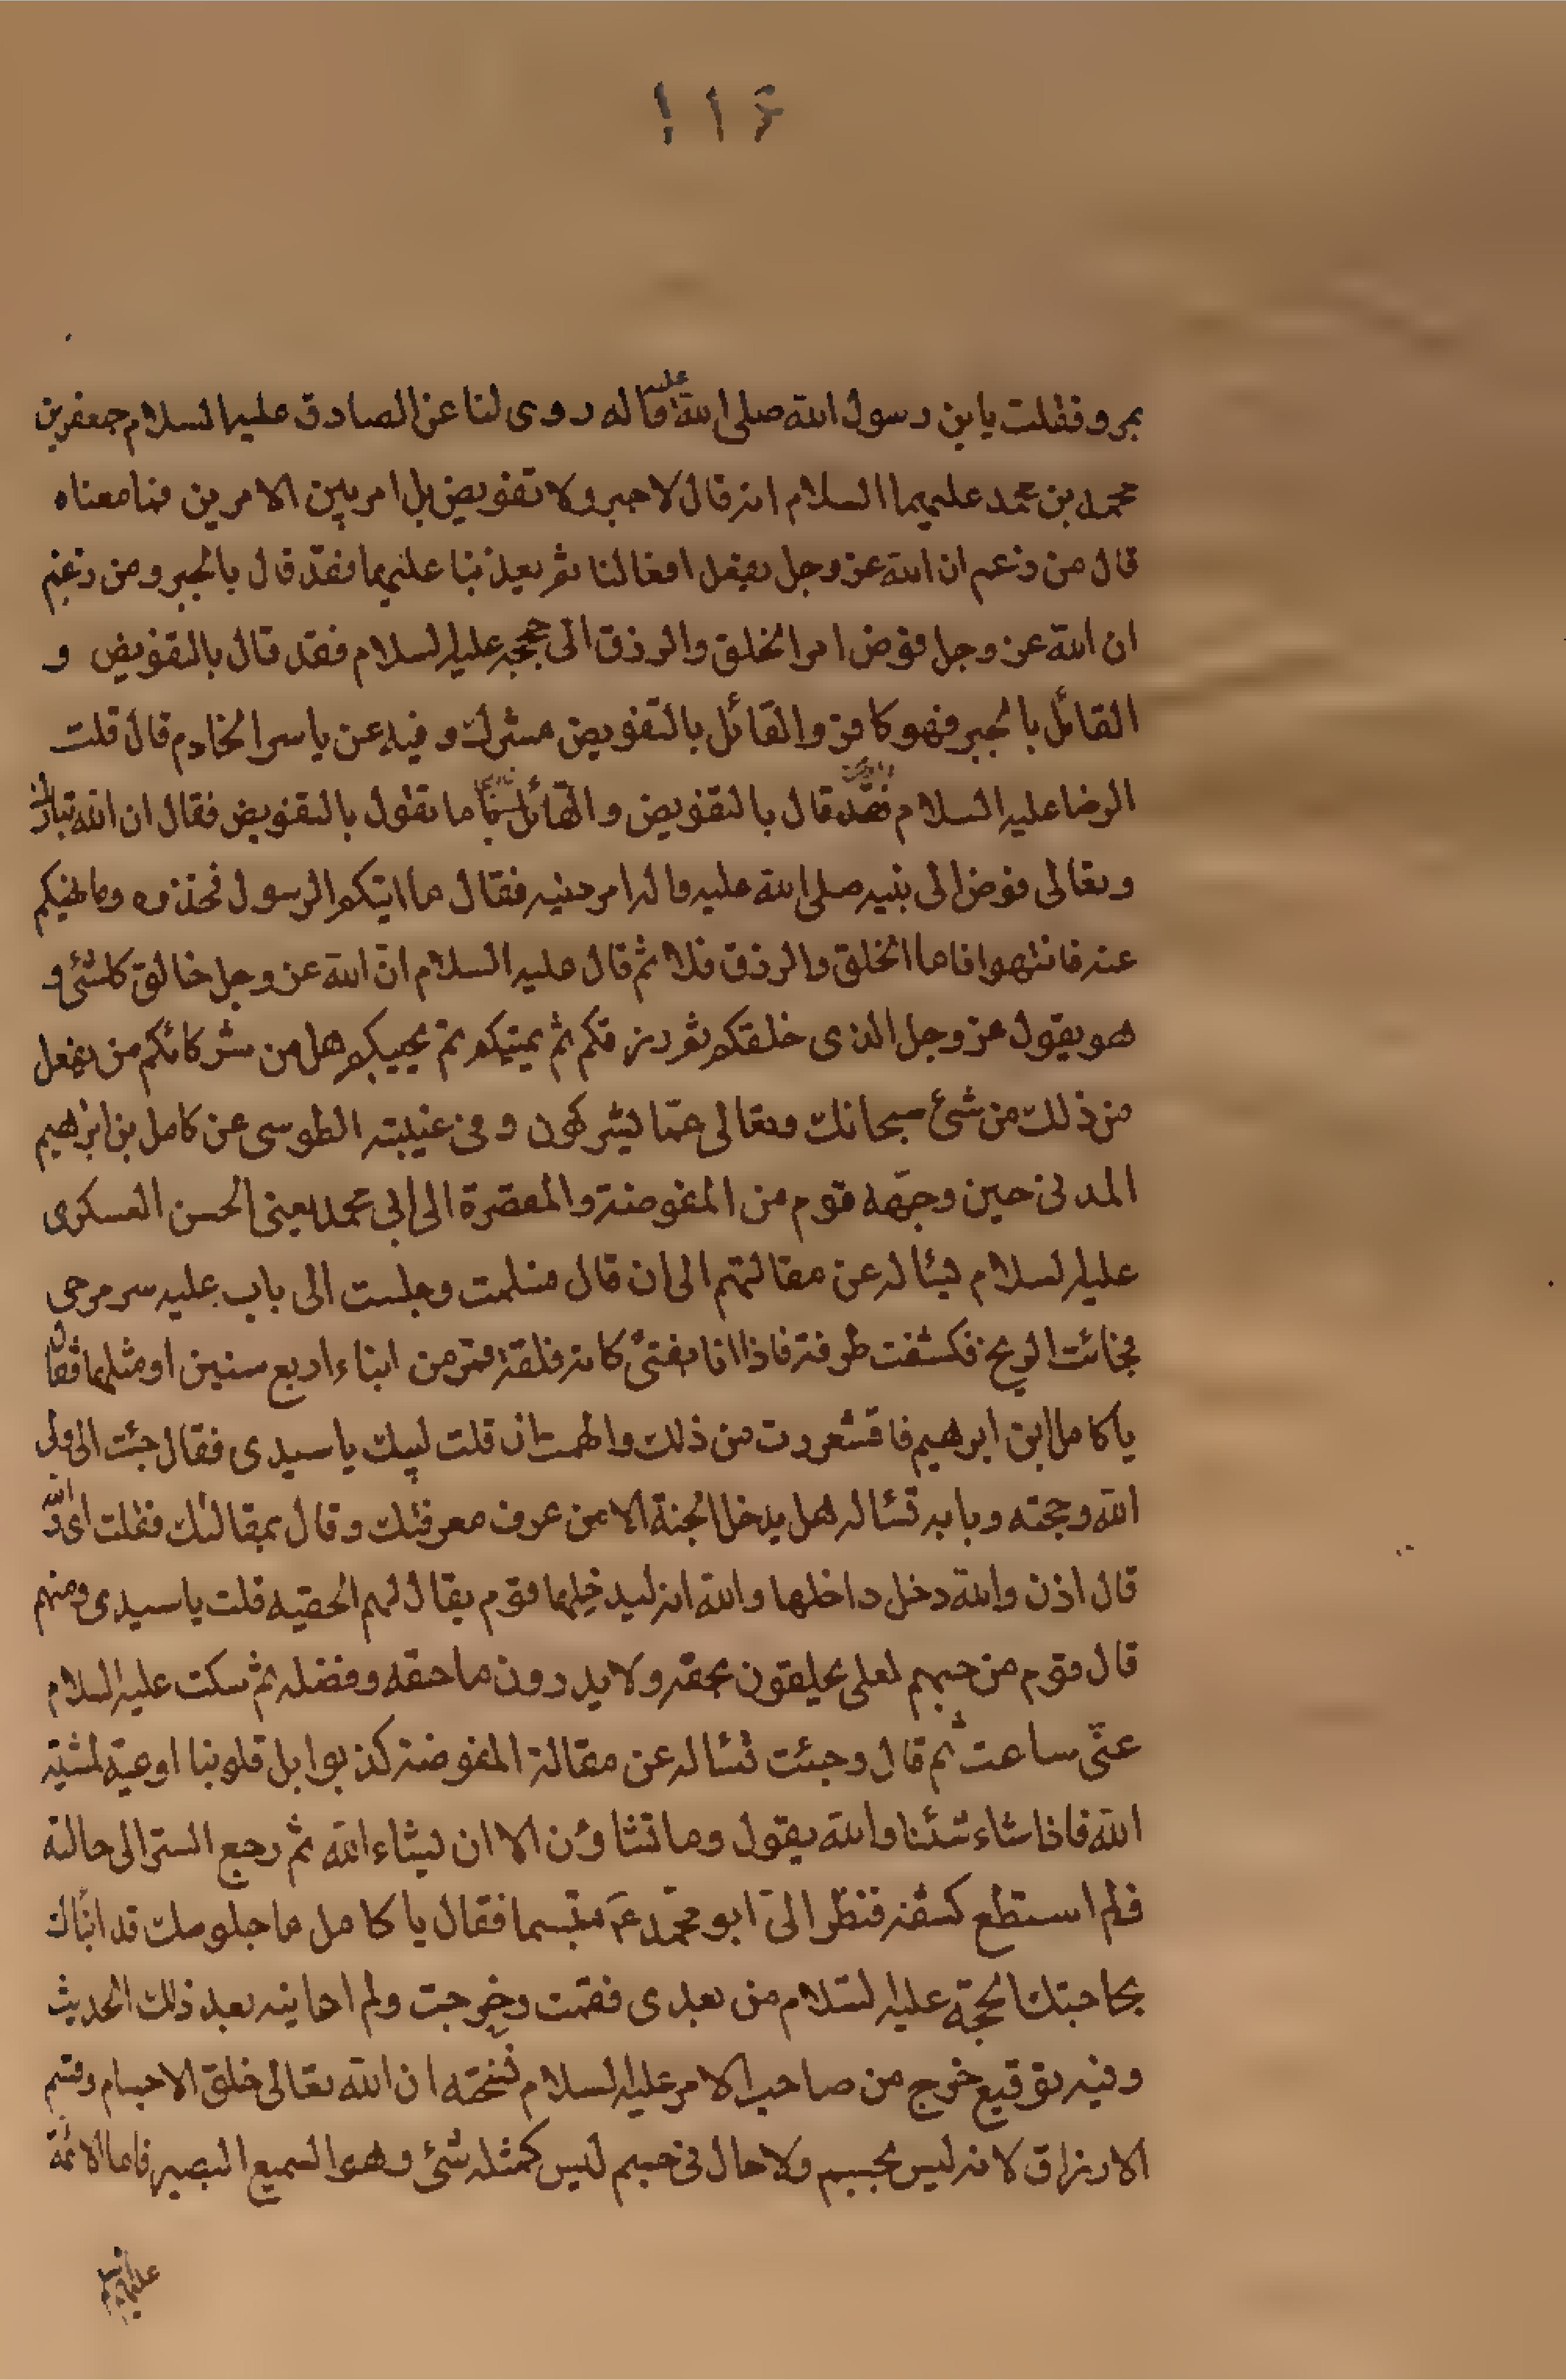 بمرو فقلت يابن رسول الله صلى الله عليه واله روى لنا عن الصادق عليه السلام جعفر بن
محمد بن محمد عليهما السلام انه قال لا جبر ولا تفويض بل امر بين الامرين فما معناه
قال من زعم ان الله عز وجل يفعل افعالنا ثم يعذبنا عليها فقد قال بالجبر ومن زعم
ان الله عز وجل فوض امر الخلق والرزق الى حججه عليه السلام فقد قال بالتفويض و
القائل بالجبر فهو كافر والقائل بالتفويض مشرك وفيه عن ياسر الخادم قال قلت
الرضا عليه السلام فقد قال بالتفويض والقائل ما تقول بالتفويض فقال ان الله تبارك
وتعالى فوض الى نبيه صلى الله عليه واله امر دينه فقال ما اتيكم الرسول فخذوه وما نهيكم
عنه فانتهوا فاما الخلق والرزق فلا ثم قال عليه السلام ان الله عز وجل خالق كلشئ و
هو يقول عز وجل الذى خلقكم ثم رزقكم ثم يميتكم ثم يحييكم هل من شركائكم من يفعل
من ذلك من شئ سبحانك وتعالى عمّا يشركون وفى غيبته الطوسى عن كامل بن ابرهيم
المدنى حين وجّهه قوم من المفوضة والمقصرة الى ابى محمد يعنى الحسن العسكرى
عليه السلام ليسئاله عن مقالتهم الى ان قال فسلمت وجلست الى باب عليه ستر مرخى
فجائت الريح فكشفت طرفه فاذا انا بفتىً كانه فلقة قمر من ابناء اربع سنين او مثلها فقال
يا كامل ابن ابرهيم فاقشعررت من ذلك والهمت ان قلت لبيك يا سيدى فقال جئت الى ولى
الله وحجته وبابه تسئاله هل يدخل الجنة الا من عرف معرفتك وقال بمقالتك فقلت اى والله
قال اذن والله دخل داخلها والله انه ليدخلها قوم يقال لهم الحقيه قلت يا سيدى ومنهم
قال قوم من حبهم لعلى يحلفون بحقه ولا يدرون ما حقه وفضله ثم سكت عليه السلام
عنّى ساعت ثم قال وجئت تسئاله عن مقالة المفوضة كذبوا بل قلوبنا اوعية لمشية
الله فاذا شاء شئنا والله يقول وما تشاؤن الا ان يشاء الله ثم رجع الستر الى حالته
فلم استطع كشفه فنظر الىّ ابو محمّد عم متبسما فقال يا كامل ما جلوسك قد انباك
بحاجتك الحجة عليه السّلام من بعدى فقمت وخرجت ولم اعاينه بعد ذلك الحديث
وفيه توقيع خرج من صاحب الامر عليه السلام نسخته ان الله تعالى خلق الاجسام وقسم
الارزاق لانه ليس بجسم ولا حال فى جسم ليس كمثله شئ وهو السميع البصير فاما الائمة